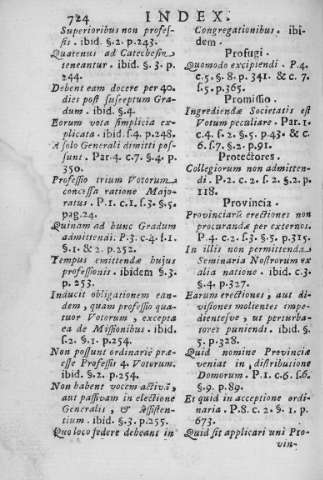 724 INDEX.
Superioribus non profes-
sis. ibid. §.2. p.243.
Quatenus ad Catechesin
teneantur. ibid. §.3. p.
244.
Debent eam docere per 40.
dies post susceptum Gra-
dum. ibid. §.4.
Eorum vota simplicia ex-
plicata. ibid. §.4. p.248.
A solo Generali dimitti pos-
sunt. Par.4. c.7. §.4. p.
350.
Professio trium Votorum
concessa ratione Majo-
ratus. P.1. c.1. §.3. §.5.
pag.24.
Quinam ad hunc Gradum
admittendi. P.3. c.4. §.1.
§.1. & 2. p.252.
Tempus emittendæ hujus
professionis. ibidem §.3.
p.253.
Inducit obligationem ean-
dem, quam professio qua-
tuor Votorum, excepta
ea de Missionibus. ibid.
§.2. §.1. p.254.
Non possunt ordinariè præ-
esse Professis 4. Votorum.
ibid. §.2. p.254.
Non habent vocem activã,
aut passivam in electione
Generalis, & Assisten-
tium. ibid. §.3. p.255.
Quo loco sedere debeant in
Congregationibus. ibi-
dem.
Profugi.
Quomodo excipiendi. P.4.
c.5. §.8. p.341. & c.7.
§.5. p.365.
Promissio.
Ingrediendæ Societatis est
Votum peculiare. Par.1.
c.4. §.2. §.5. p.43. & c.
6. §.7. §.2. p.91.
Protectores.
Collegiorum non admitten-
di. P.2. c.2. §.2. §.2. p.
118.
Provincia.
Provinciarũ erectiones non
procurandæ per externos.
P.4. c.2. §.3. §.5. p.315.
In illis non permittenda
Seminaria Nostrorum ex
alia natione. ibid. c.3.
§.4. p.327.
Earum erectiones, aut di-
visiones molientes impe-
dientesve, ut perturba-
tores puniendi. ibid. §.
5. p.328.
Quid nomine Provinciæ
veniat in distributione
Domorum. P.1. c.6. §.6.
§.9. p.89.
Et quid in acceptione ordi-
naria. P.8. c.2. §.1. p.
673.
Quid sit applicari uni Pro-
vin-